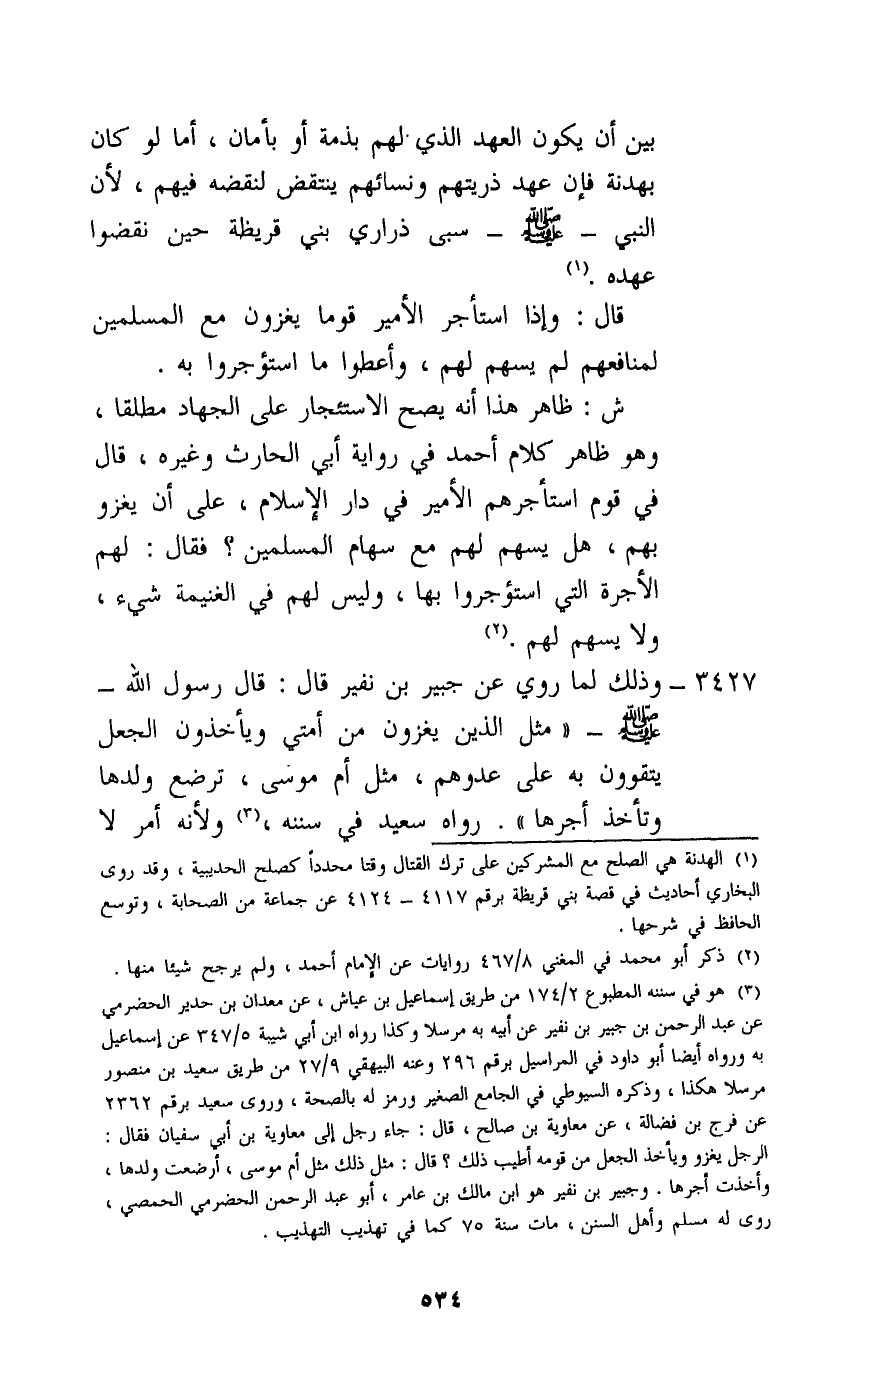 بين أن يكون العهد الذي لهم بذمة أو بأمان ، أما لو كان
بهدنة فإن عهد ذريتهم ونسائهم ينتقض لنقضه فيهم ، لأن
النبي – ﷺ – سبى ذراري بني قريظة حين نقضوا
عهده .(١)
قال : وإذا استأجر الأمير قوما يغزون مع المسلمين
لمنافعهم لم يسهم لهم ، وأعطوا ما استؤجروا به .
ش : ظاهر هذا أنه يصح الاستئجار على الجهاد مطلقا ،
وهو ظاهر كلام أحمد في رواية أبي الحارث وغيره ، قال
في قوم استأجرهم الأمير في دار الإسلام ، على أن يغزو
بهم ، هل يسهم لهم مع سهام المسلمين ؟ فقال : لهم
الأجرة التي استؤجروا بها ، وليس لهم في الغنيمة شيء ،
ولا يسهم لهم .(٢)
٣٤٢٧ – وذلك لما روي عن جبير بن نفير قال : قال رسول الله –
ﷺ – « مثل الذين يغزون من أمتي ويأخذون الجعل
يتقوون به على عدوهم ، مثل أم موسى ، ترضع ولدها
وتأخذ أجرها » . رواه سعيد في سننه ،(٣) ولأنه أمر لا
(١) الهدنة هي الصلح مع المشركين على ترك القتال وقتا محدداً كصلح الحديبية ، وقد روى
البخاري أحاديث في قصة بني قريظة برقم ٤١١٧ – ٤١٢٤ عن جماعة من الصحابة ، وتوسع
الحافظ في شرحها .
(٢) ذكر أبو محمد في المغني ٤٦٧/٨ روايات عن الإمام أحمد ، ولم يرجح شيئا منها .
(٣) هو في سننه المطبوع ١٧٤/٢ من طريق إسماعيل بن عياش ، عن معدان بن حدير الحضرمي
عن عبد الرحمن بن جبير بن نفير عن أبيه به مرسلا وكذا رواه ابن أبي شيبة ٣٤٧/٥ عن إسماعيل
به ورواه أيضا أبو داود في المراسيل برقم ٢٩٦ وعنه البيهقي ٢٧/٩ من طريق سعيد بن منصور
مرسلا هكذا ، وذكره السيوطي في الجامع الصغير ورمز له بالصحة ، وروى سعيد برقم ٢٣٦٢
عن فرج بن فضالة ، عن معاوية بن صالح ، قال : جاء رجل إلى معاوية بن أبي سفيان فقال :
الرجل يغزو ويأخذ الجعل من قومه أطيب ذلك ؟ قال : مثل ذلك مثل أم موسى ، أرضعت ولدها ،
وأخذت أجرها . وجبير بن نفير هو ابن مالك بن عامر ، أبو عبد الرحمن الحضرمي الحمصي ،
روى له مسلم وأهل السنن ، مات سنة ٧٥ كما في تهذيب التهذيب .
٥٣٤